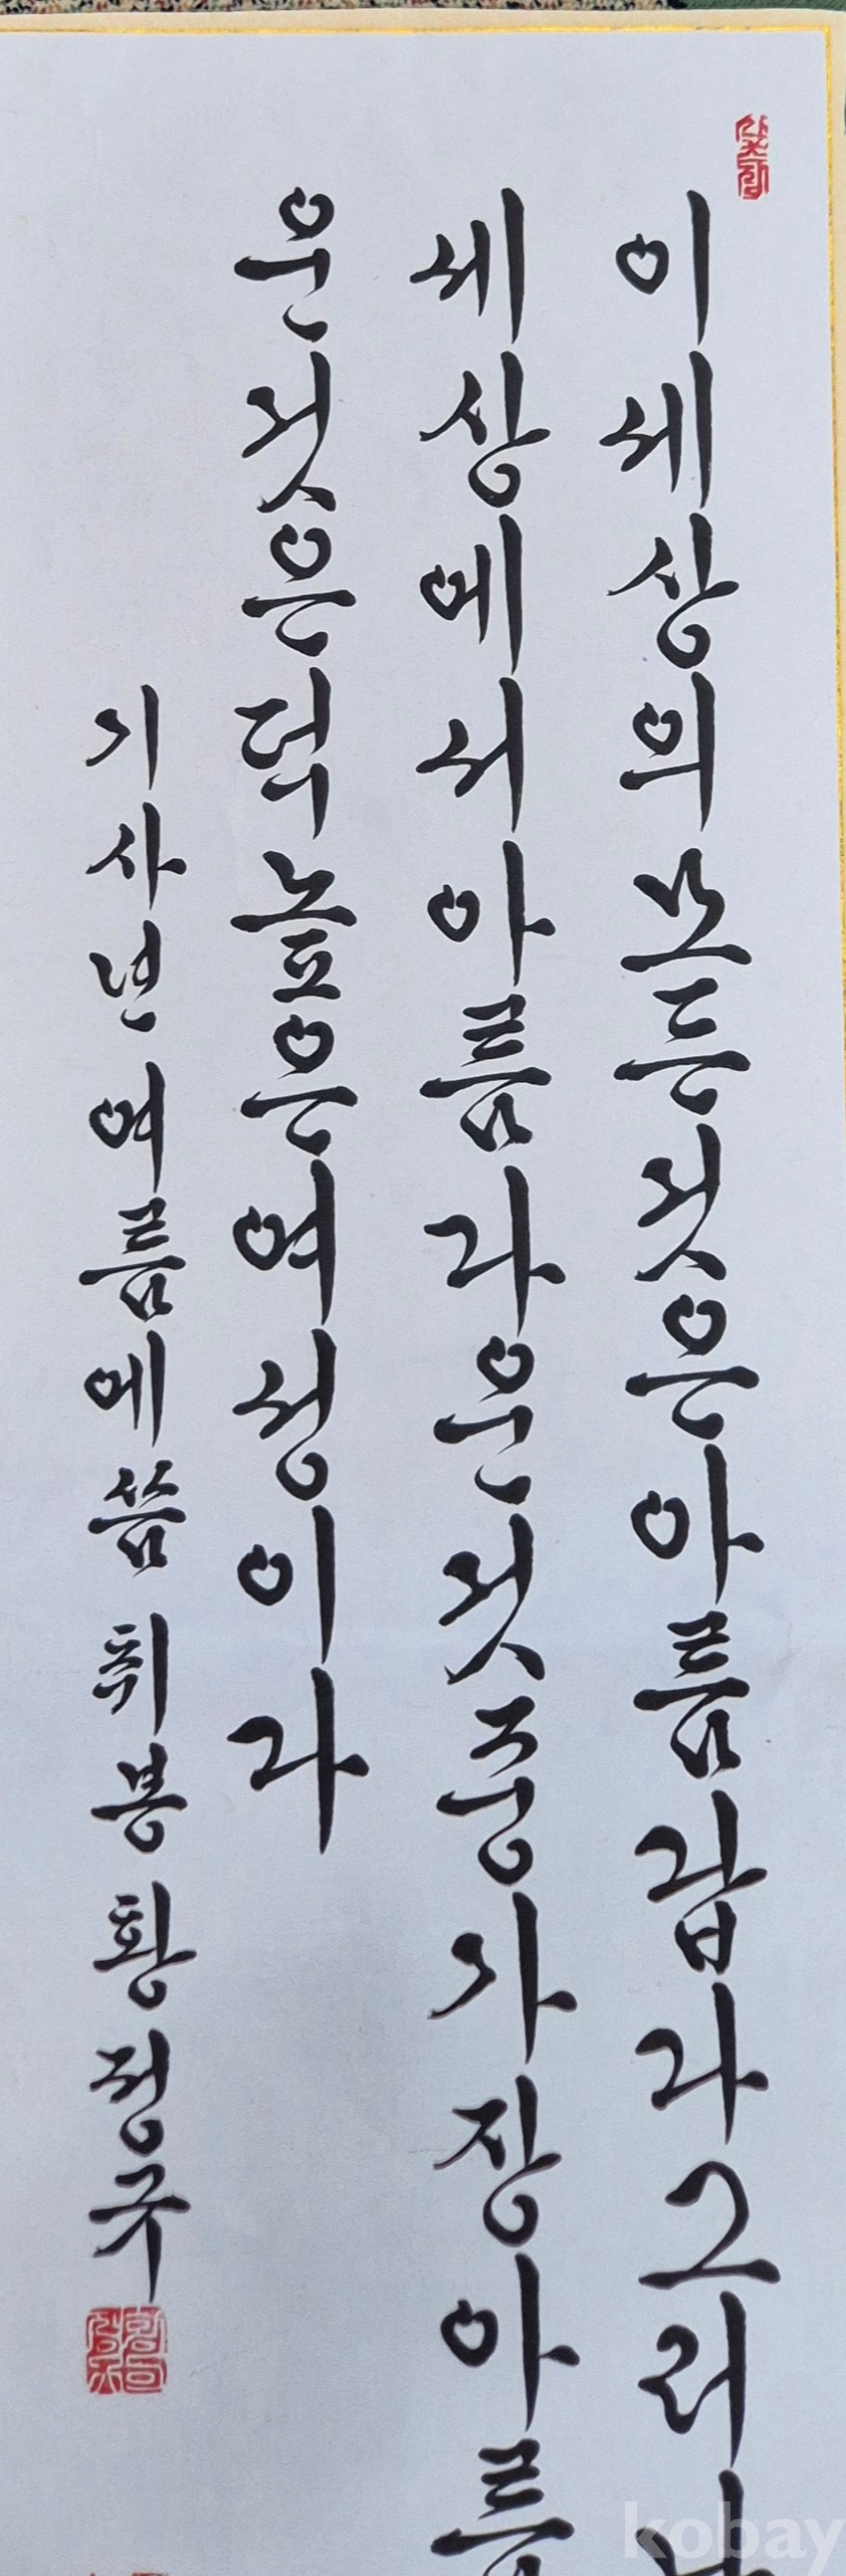 이세상의모든것은아름답다그러
세상에서아름다운것중가장아름
운것은덕높은여성이라
기사년 여름에 씀 취봉 황정규
kobay